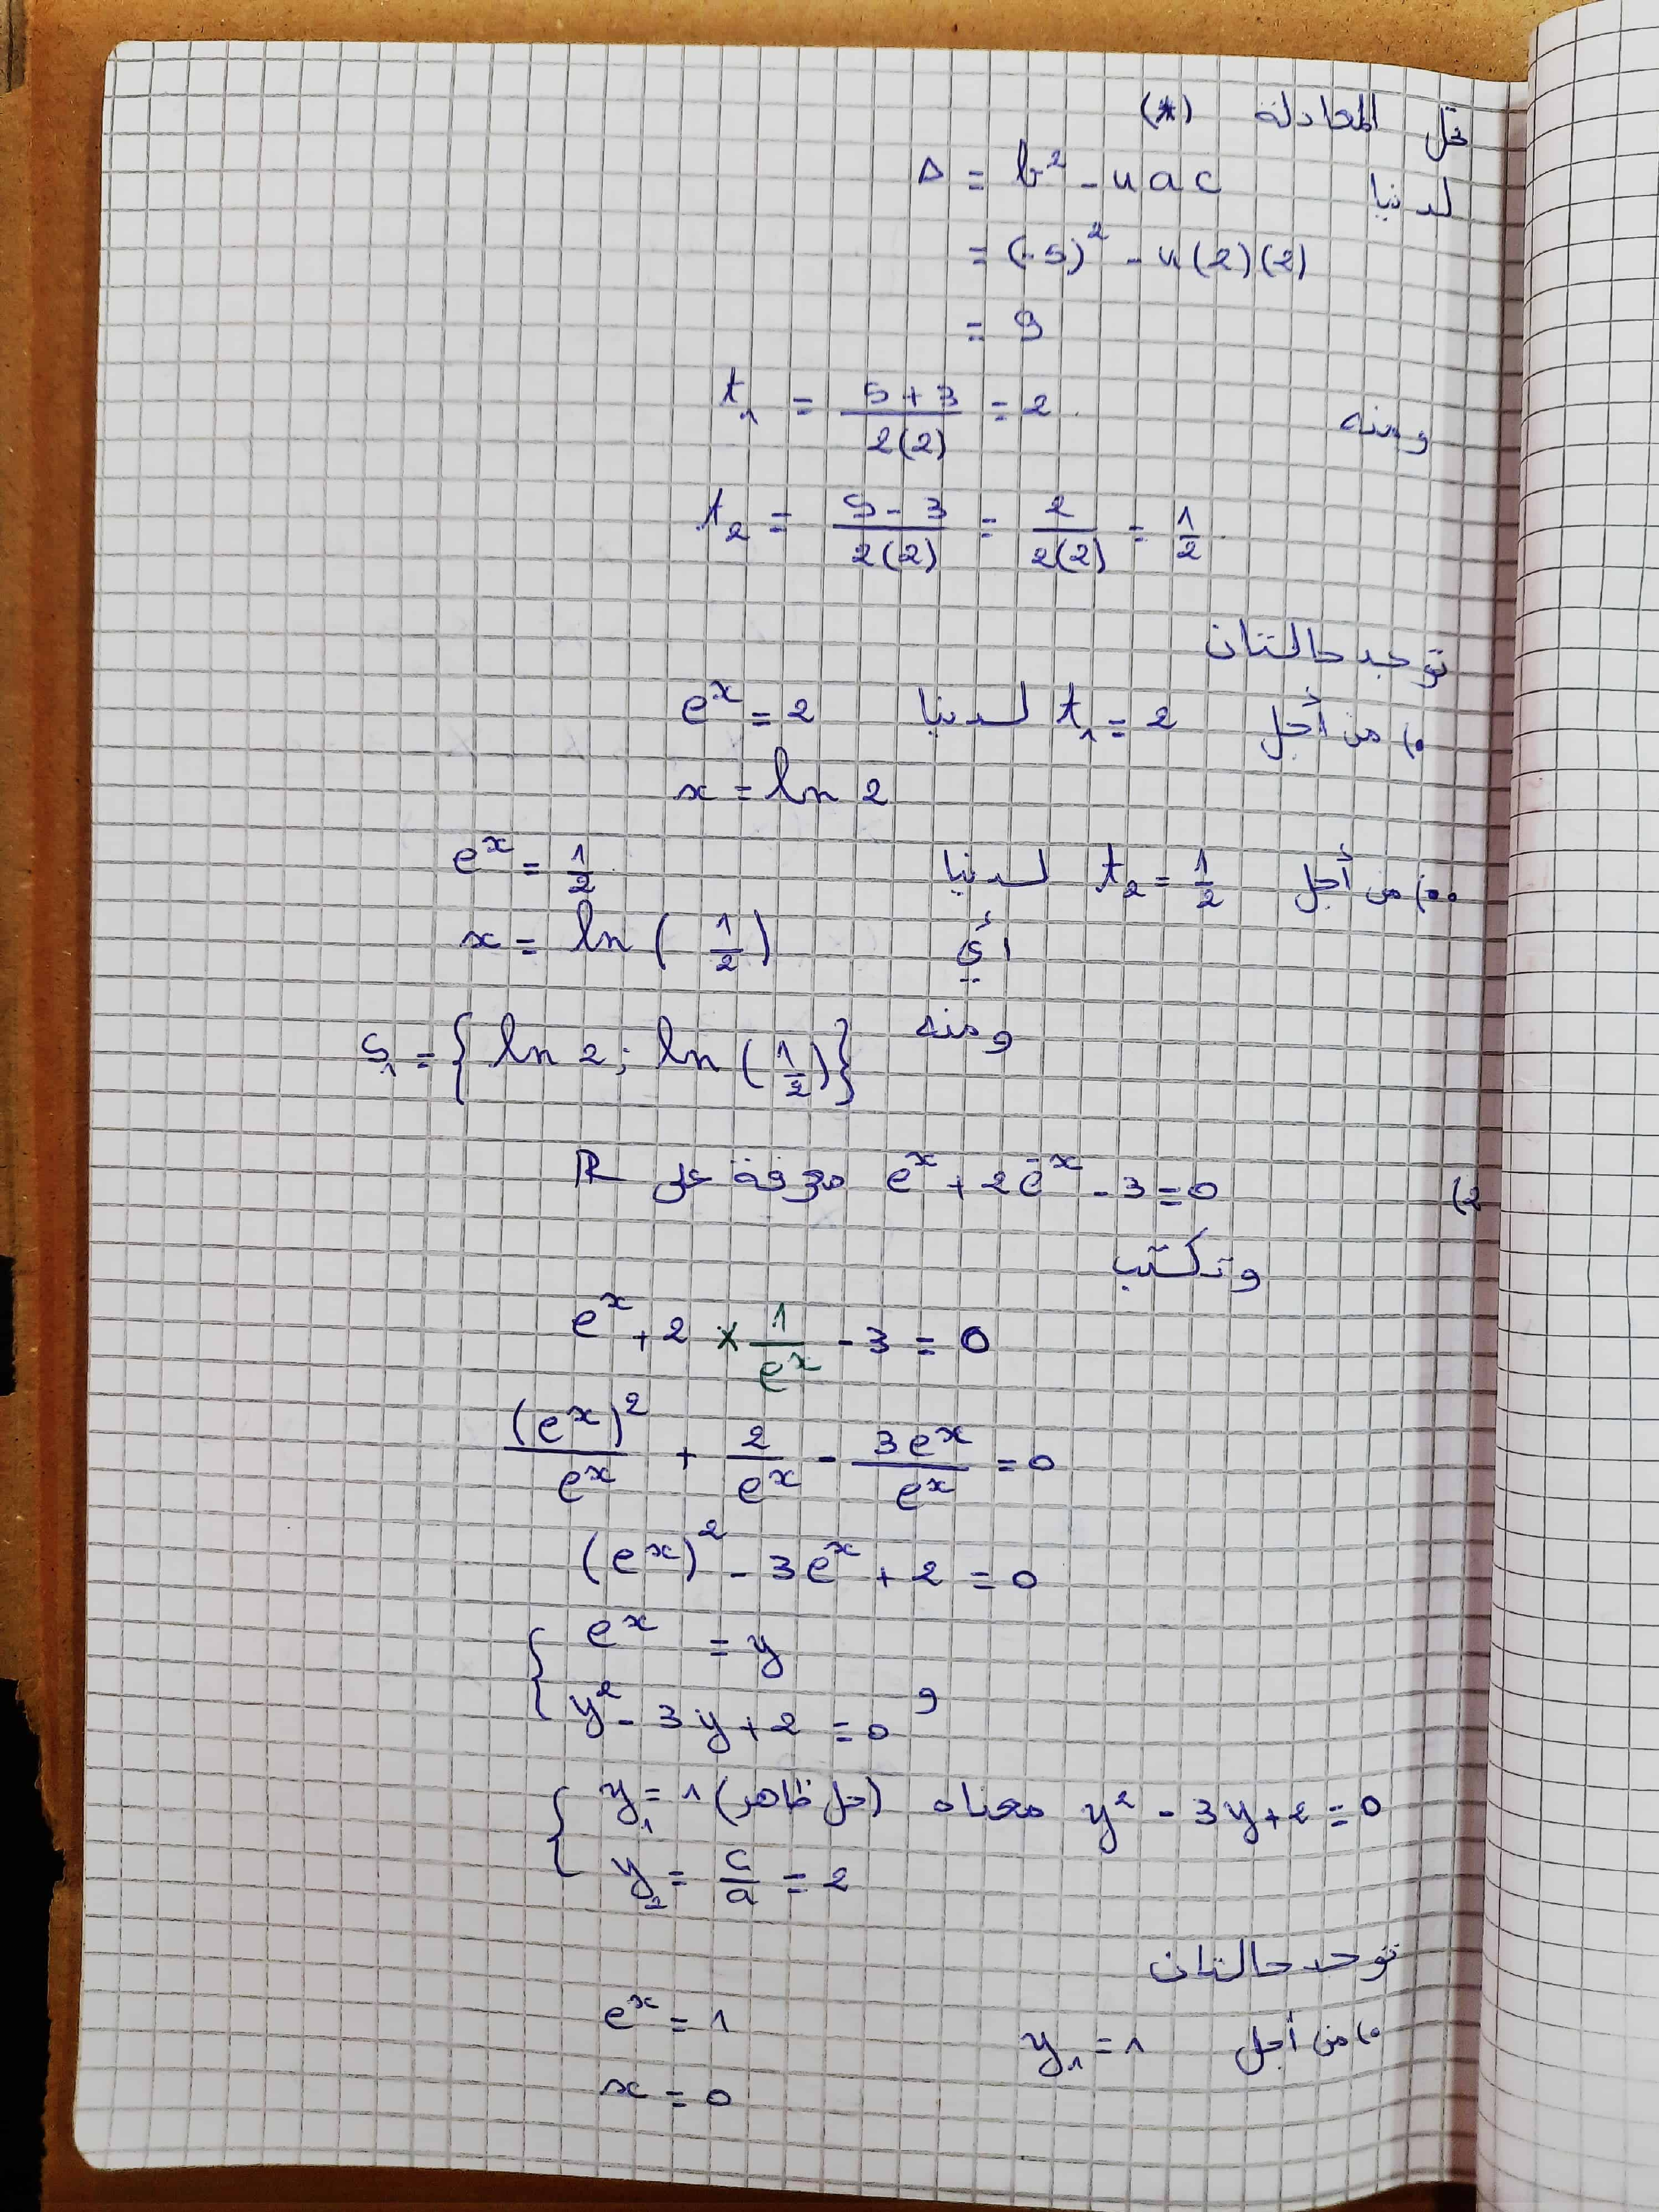 حل المعادلة (*)
لدينا Δ = b² - 4ac
= (-5)² - 4(2)(2)
= 9
ومنه t₁ = (5+3)/(2(2)) = 2
t₂ = (5-3)/(2(2)) = 2/(2(2)) = 1/2
توجد حالتان
•) من أجل t₁ = 2 لدينا eˣ = 2
x = ln 2
••) من أجل t₂ = 1/2 لدينا eˣ = 1/2
أي x = ln(1/2)
ومنه S₁ = {ln 2; ln(1/2)}
2) eˣ + 2e⁻ˣ - 3 = 0 معرفة على ℝ
وتكتب
eˣ + 2 × 1/eˣ - 3 = 0
(eˣ)²/eˣ + 2/eˣ - 3eˣ/eˣ = 0
(eˣ)² - 3eˣ + 2 = 0
{ eˣ = y
y² - 3y + 2 = 0 و
y² - 3y + 2 = 0 معناه { y₁ = 1 (حل ظاهر)
y₂ = c/a = 2
توجد حالتان
•) من أجل y₁ = 1 eˣ = 1
x = 0